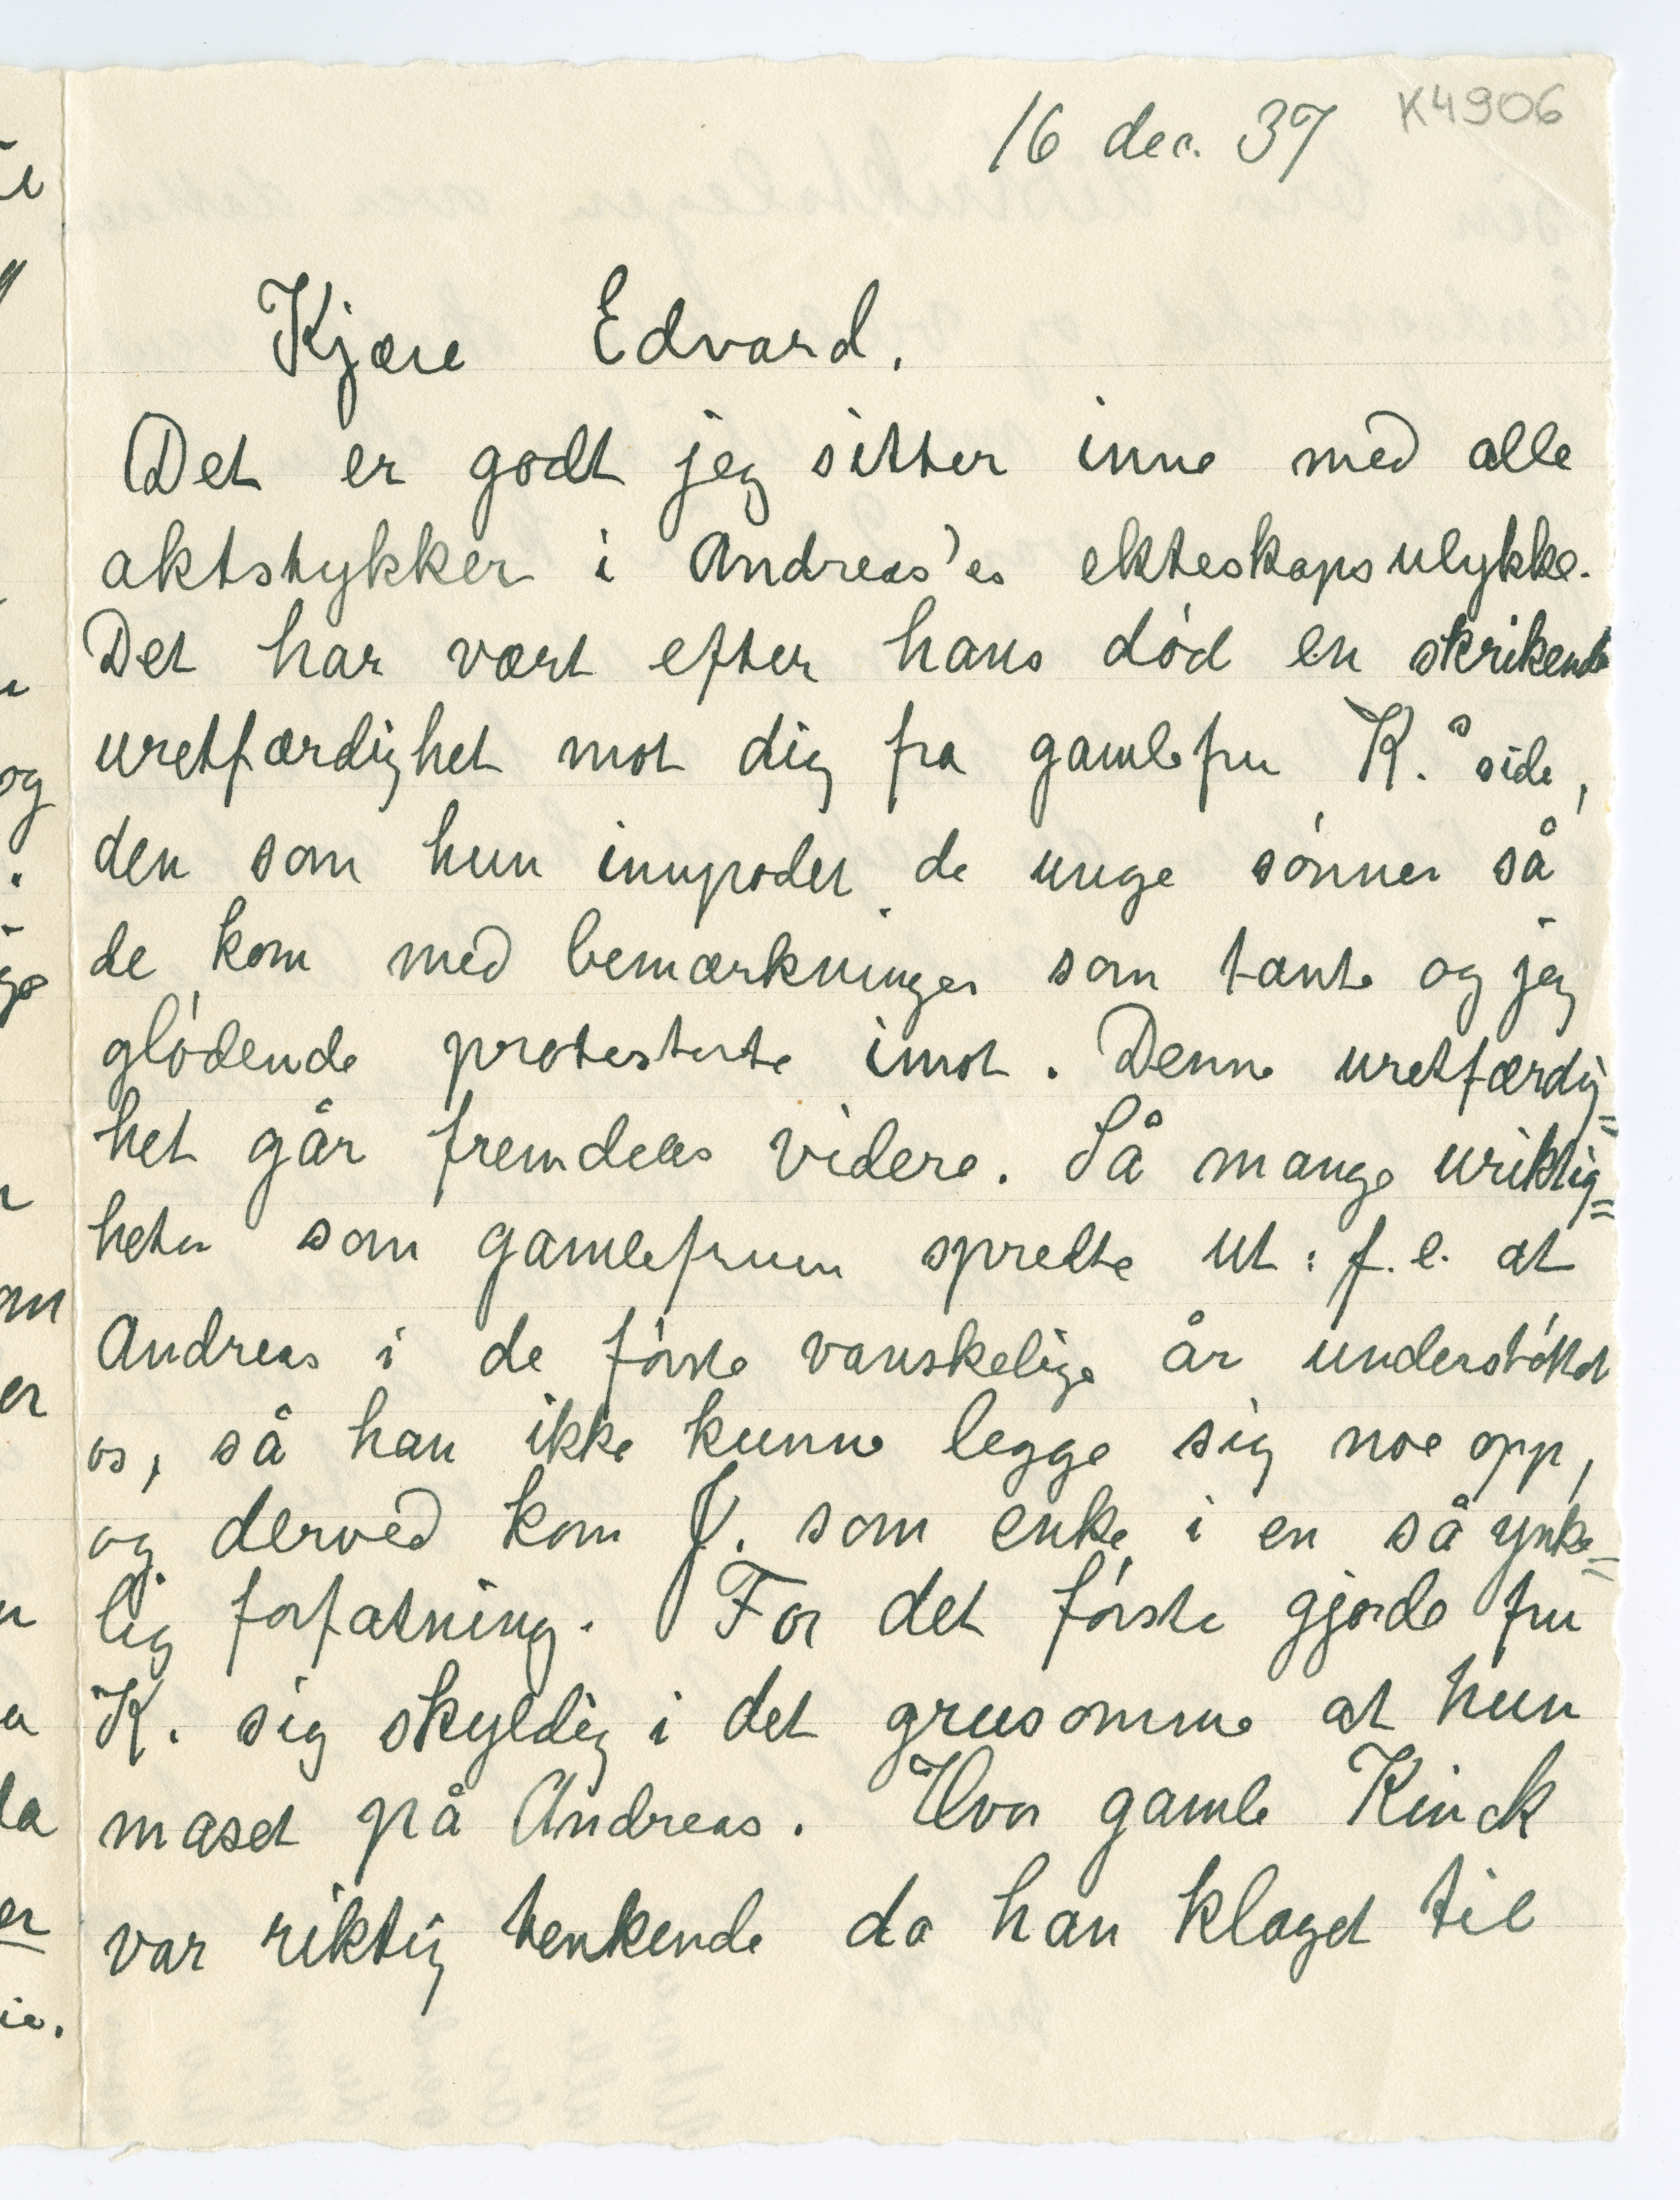 16 dec. 37 K4906
Kjære Edvard.
Det er godt jeg sitter inne med alle
aktstykker i Andreas'es ekteskapsulykke.
Det har vært efter hans død en skrikende
uretfærdighet mot dig fra gamlefru K.s side,
den som hun innpodet de unge sønner så
de kom med bemærkninger som tante og jeg
glødende protesterte imot. Denne uretfærdig=
het går fremdeles videre. Så mange uriktig=
heter som gamlefruen spredte ut: f.e. at
Andreas i de første vanskelige år understøttet
os, så han ikke kunne legge sig noe opp,
og derved kom J. som enke i en så ynke=
lig forfatning. For det første gjorde fru
K. sig skyldig i det grusomme at hun
maset på Andreas. Hvor gamle Kinck
var riktig tenkende da han klaget til
og
an
er
er